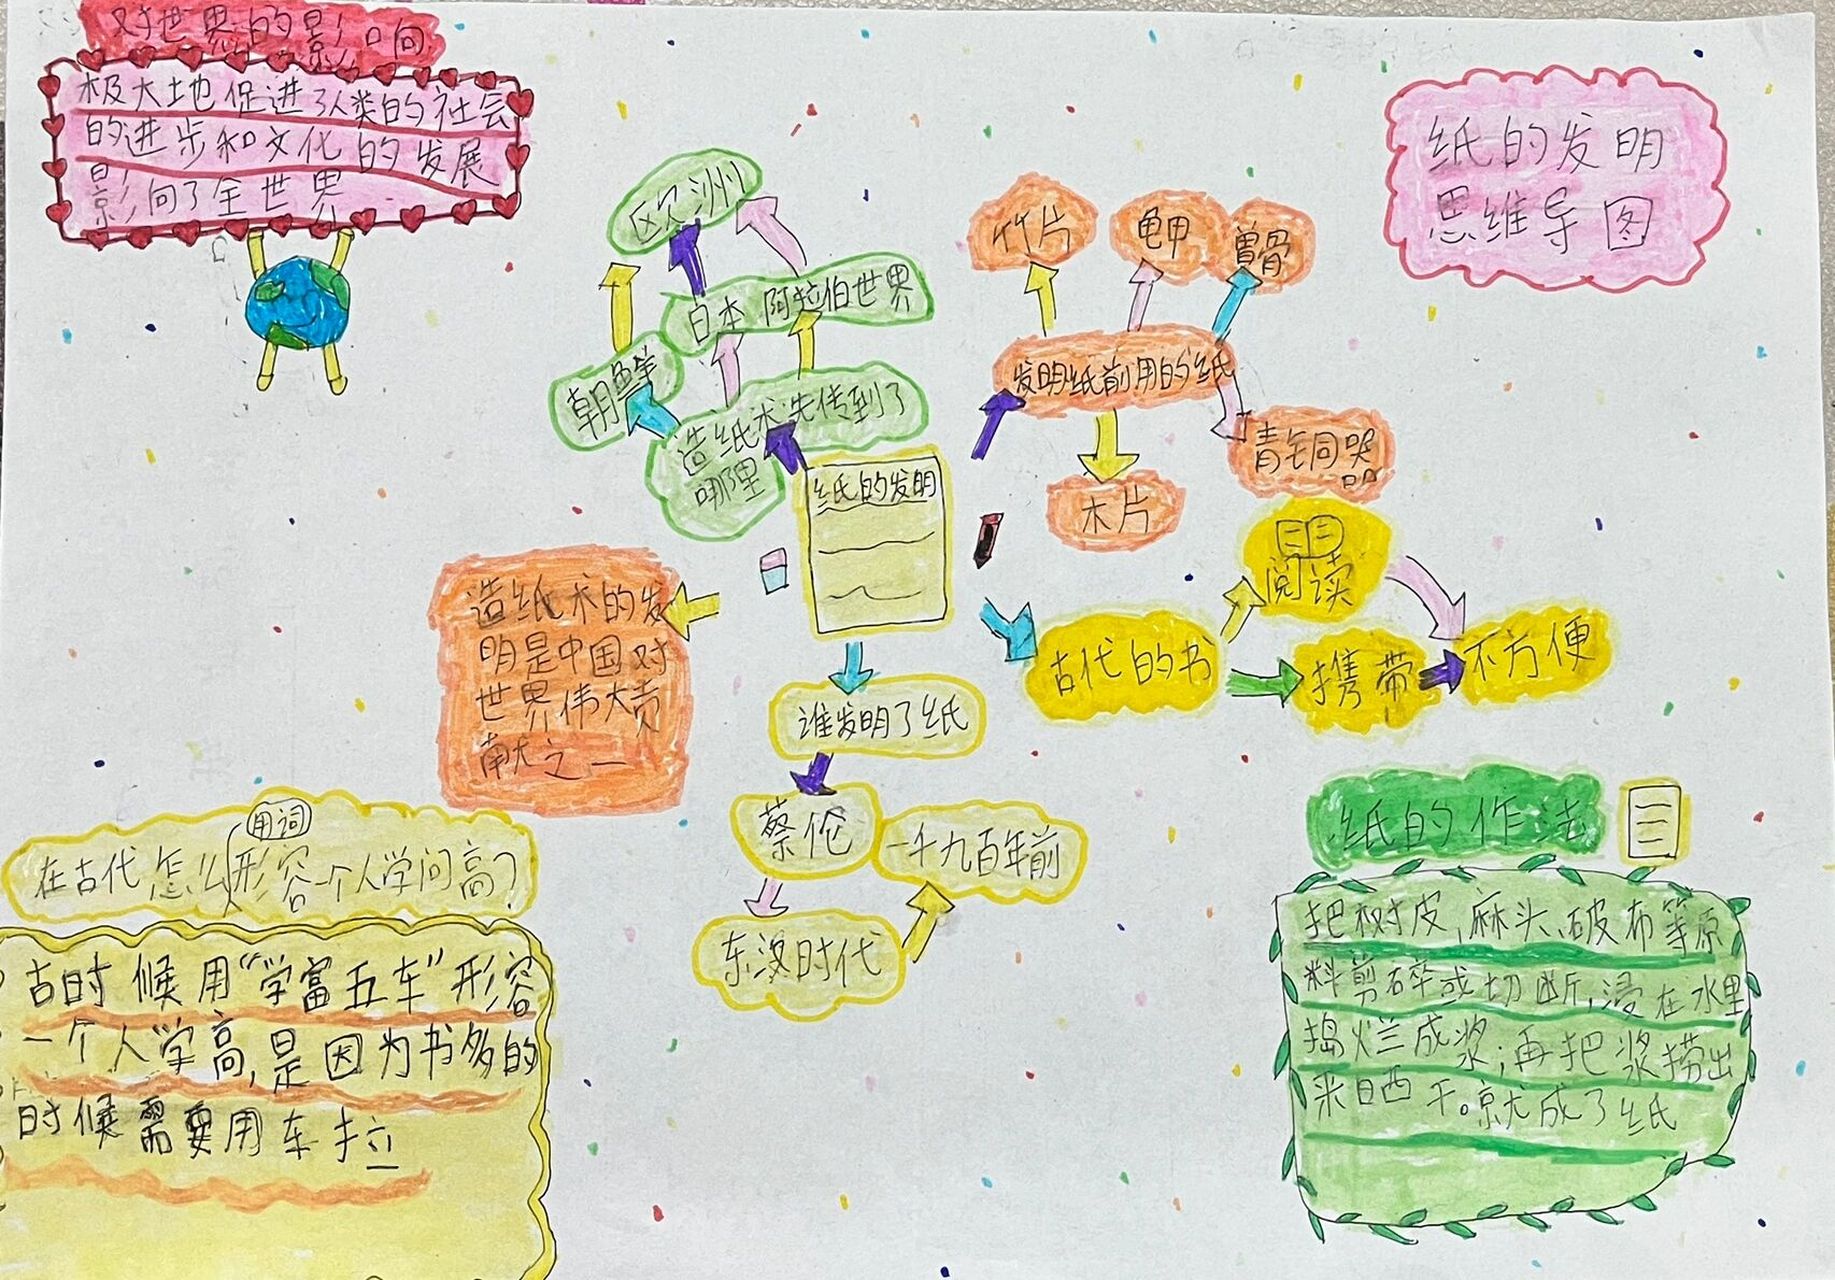 对世界的影响
极大地促进了人类的社会
的进步和文化的发展
影响了全世界
纸的发明
思维导图
欧洲
日本 阿拉伯世界
朝鲜
造纸术先传到了
哪里
竹片
龟甲
兽骨
发明纸前用的纸
青铜器
木片
纸的发明
阅读
古代的书
携带
不方便
造纸术的发
明是中国对
世界伟大贡
献之一
谁发明了纸
蔡伦
一千九百年前
东汉时代
用词
在古代怎么形容一个人学问高?
古时候用“学富五车”形容
一个人学高,是因为书多的
时候需要用车拉
纸的作法
把树皮,麻头、破布等原
料剪碎或切断,浸在水里
捣烂成浆;再把浆捞出
来晒干。就成了纸